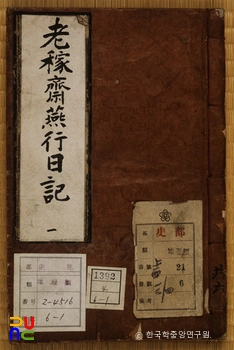 老稼齋燕行日記
一
1392
4
6-1
番号 2-4516
6-1
史部
21
6
共六
PUAC
한국학중앙연구원